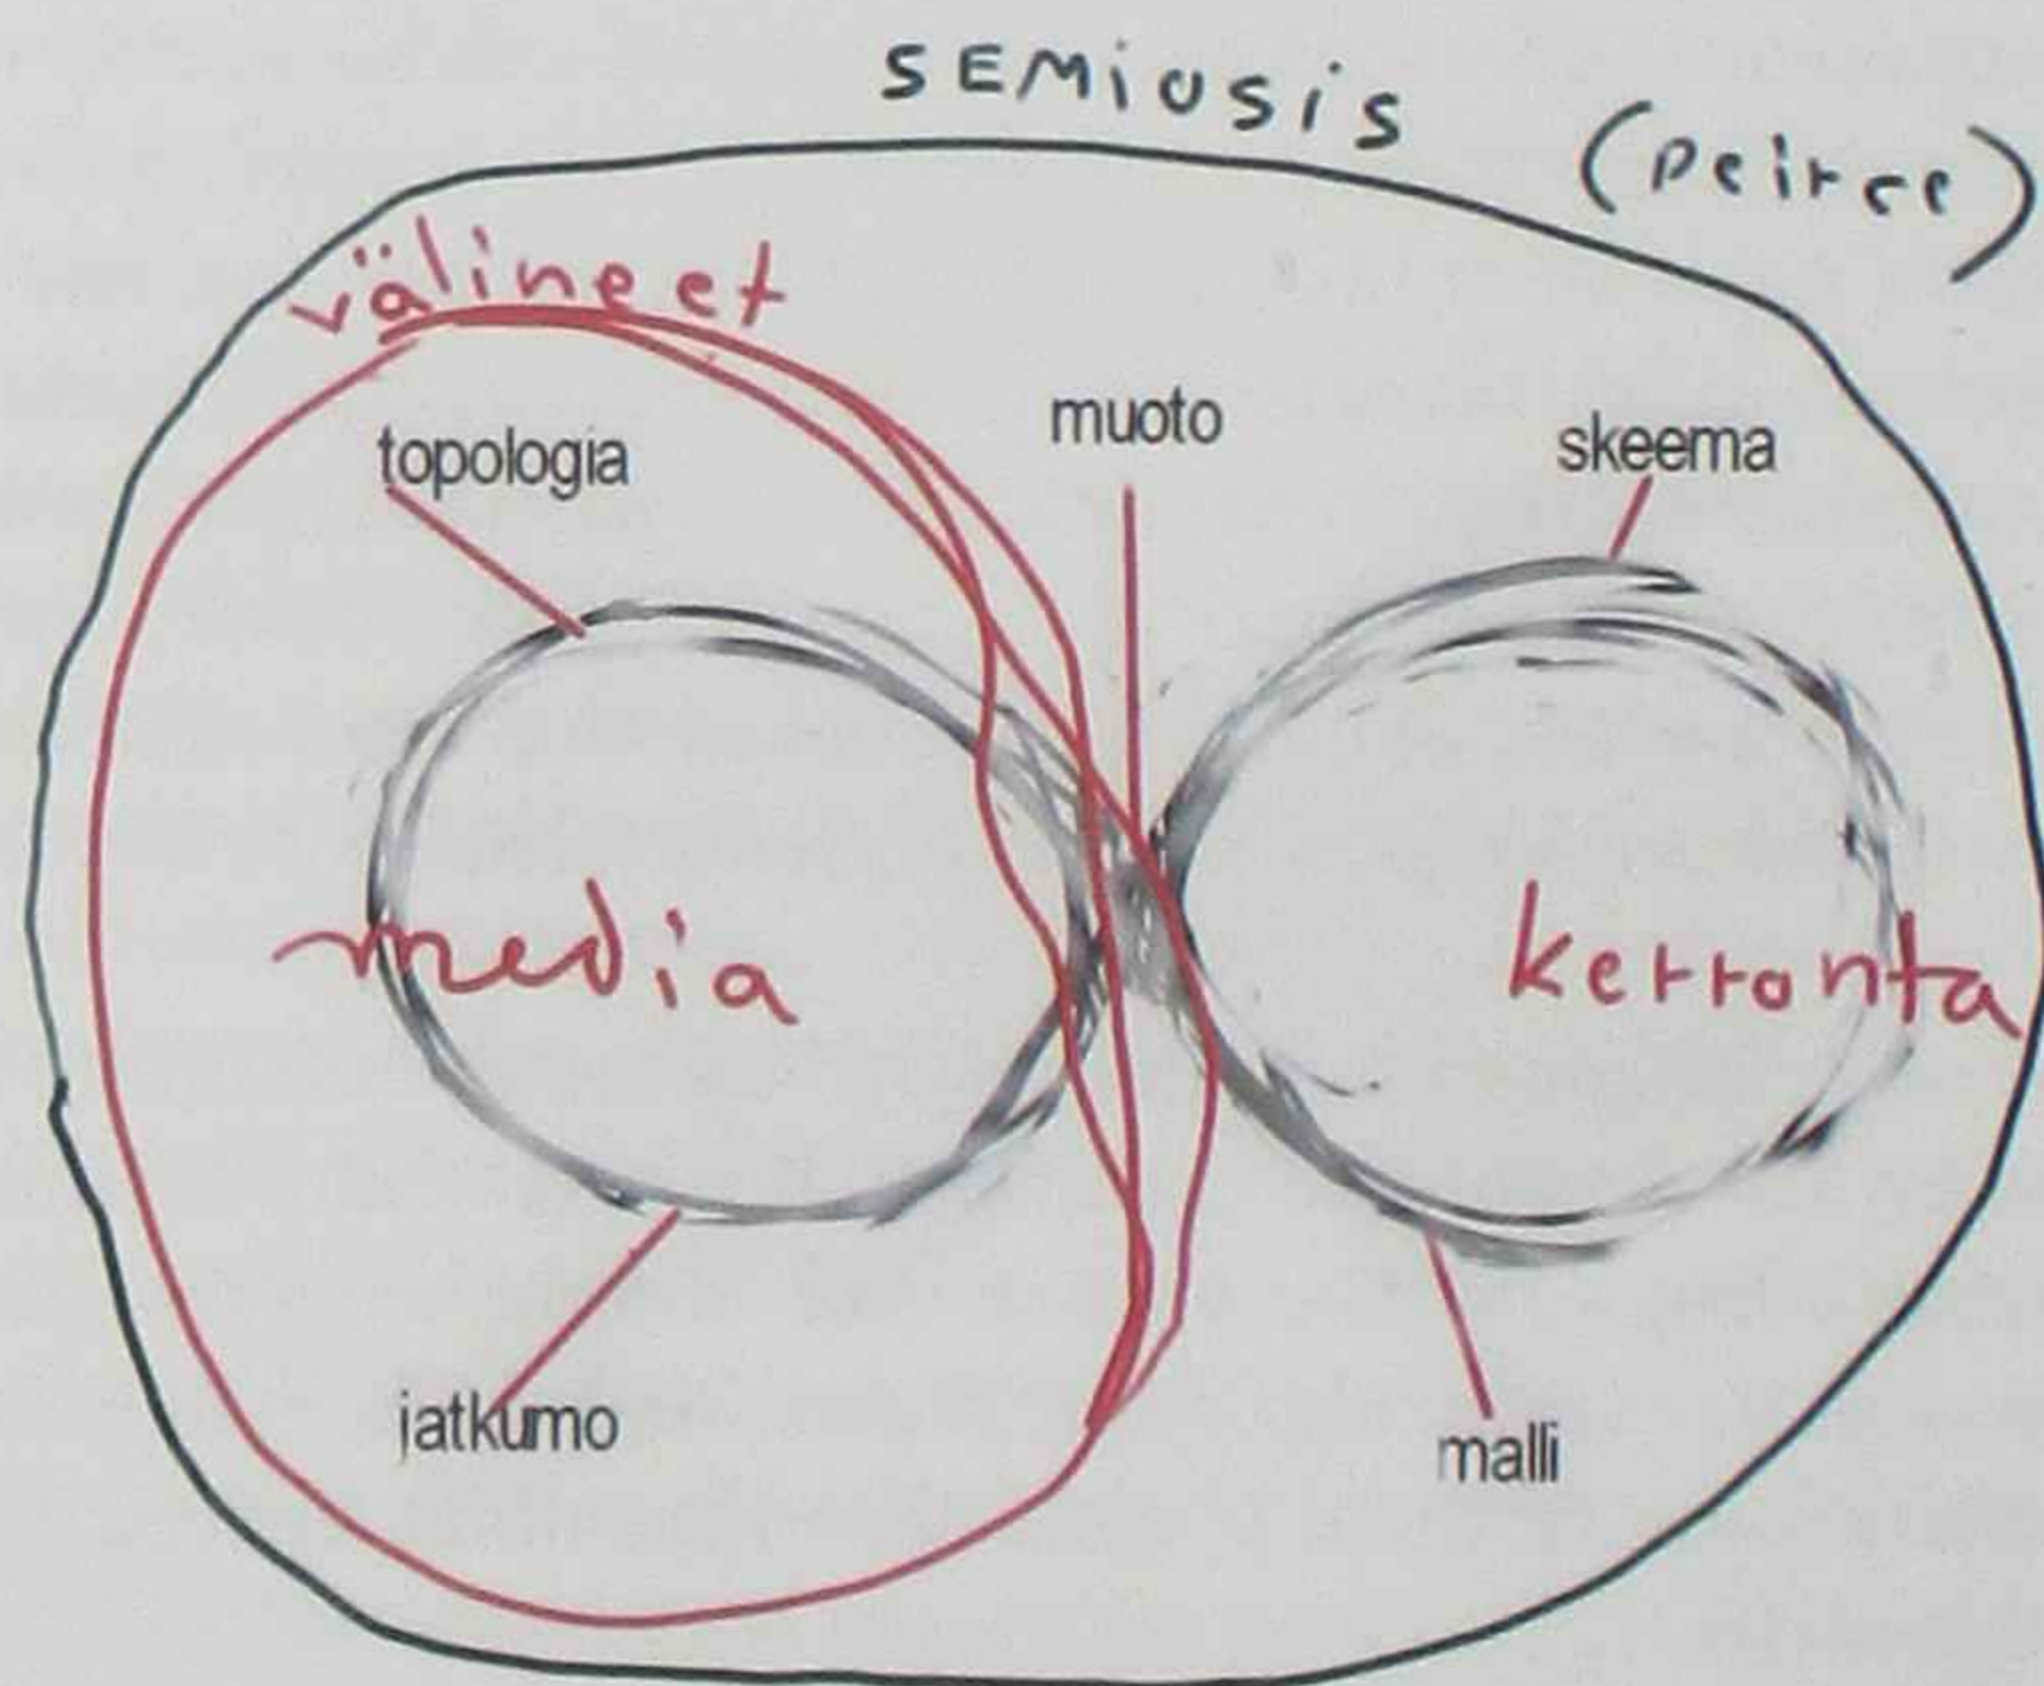 SEMiosis
(peirce)
välineet
topologia
muoto
skeema
media
kerronta
jatkumo
malli